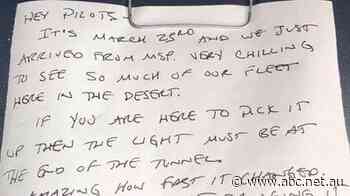 HEY PILOTS -
IT'S MARCH 23RD AND WE JUST
ARRIVED FROM MSP. VERY CHILLING
TO SEE SO MUCH OF OUR FLEET
HERE IN THE DESERT.
IF YOU ARE HERE TO PICK IT
UP THEN THE LIGHT MUST BE AT
THE END OF THE TUNNEL.
AMAZING HOW FAST IT CHANGED.
© www.abc.net.au